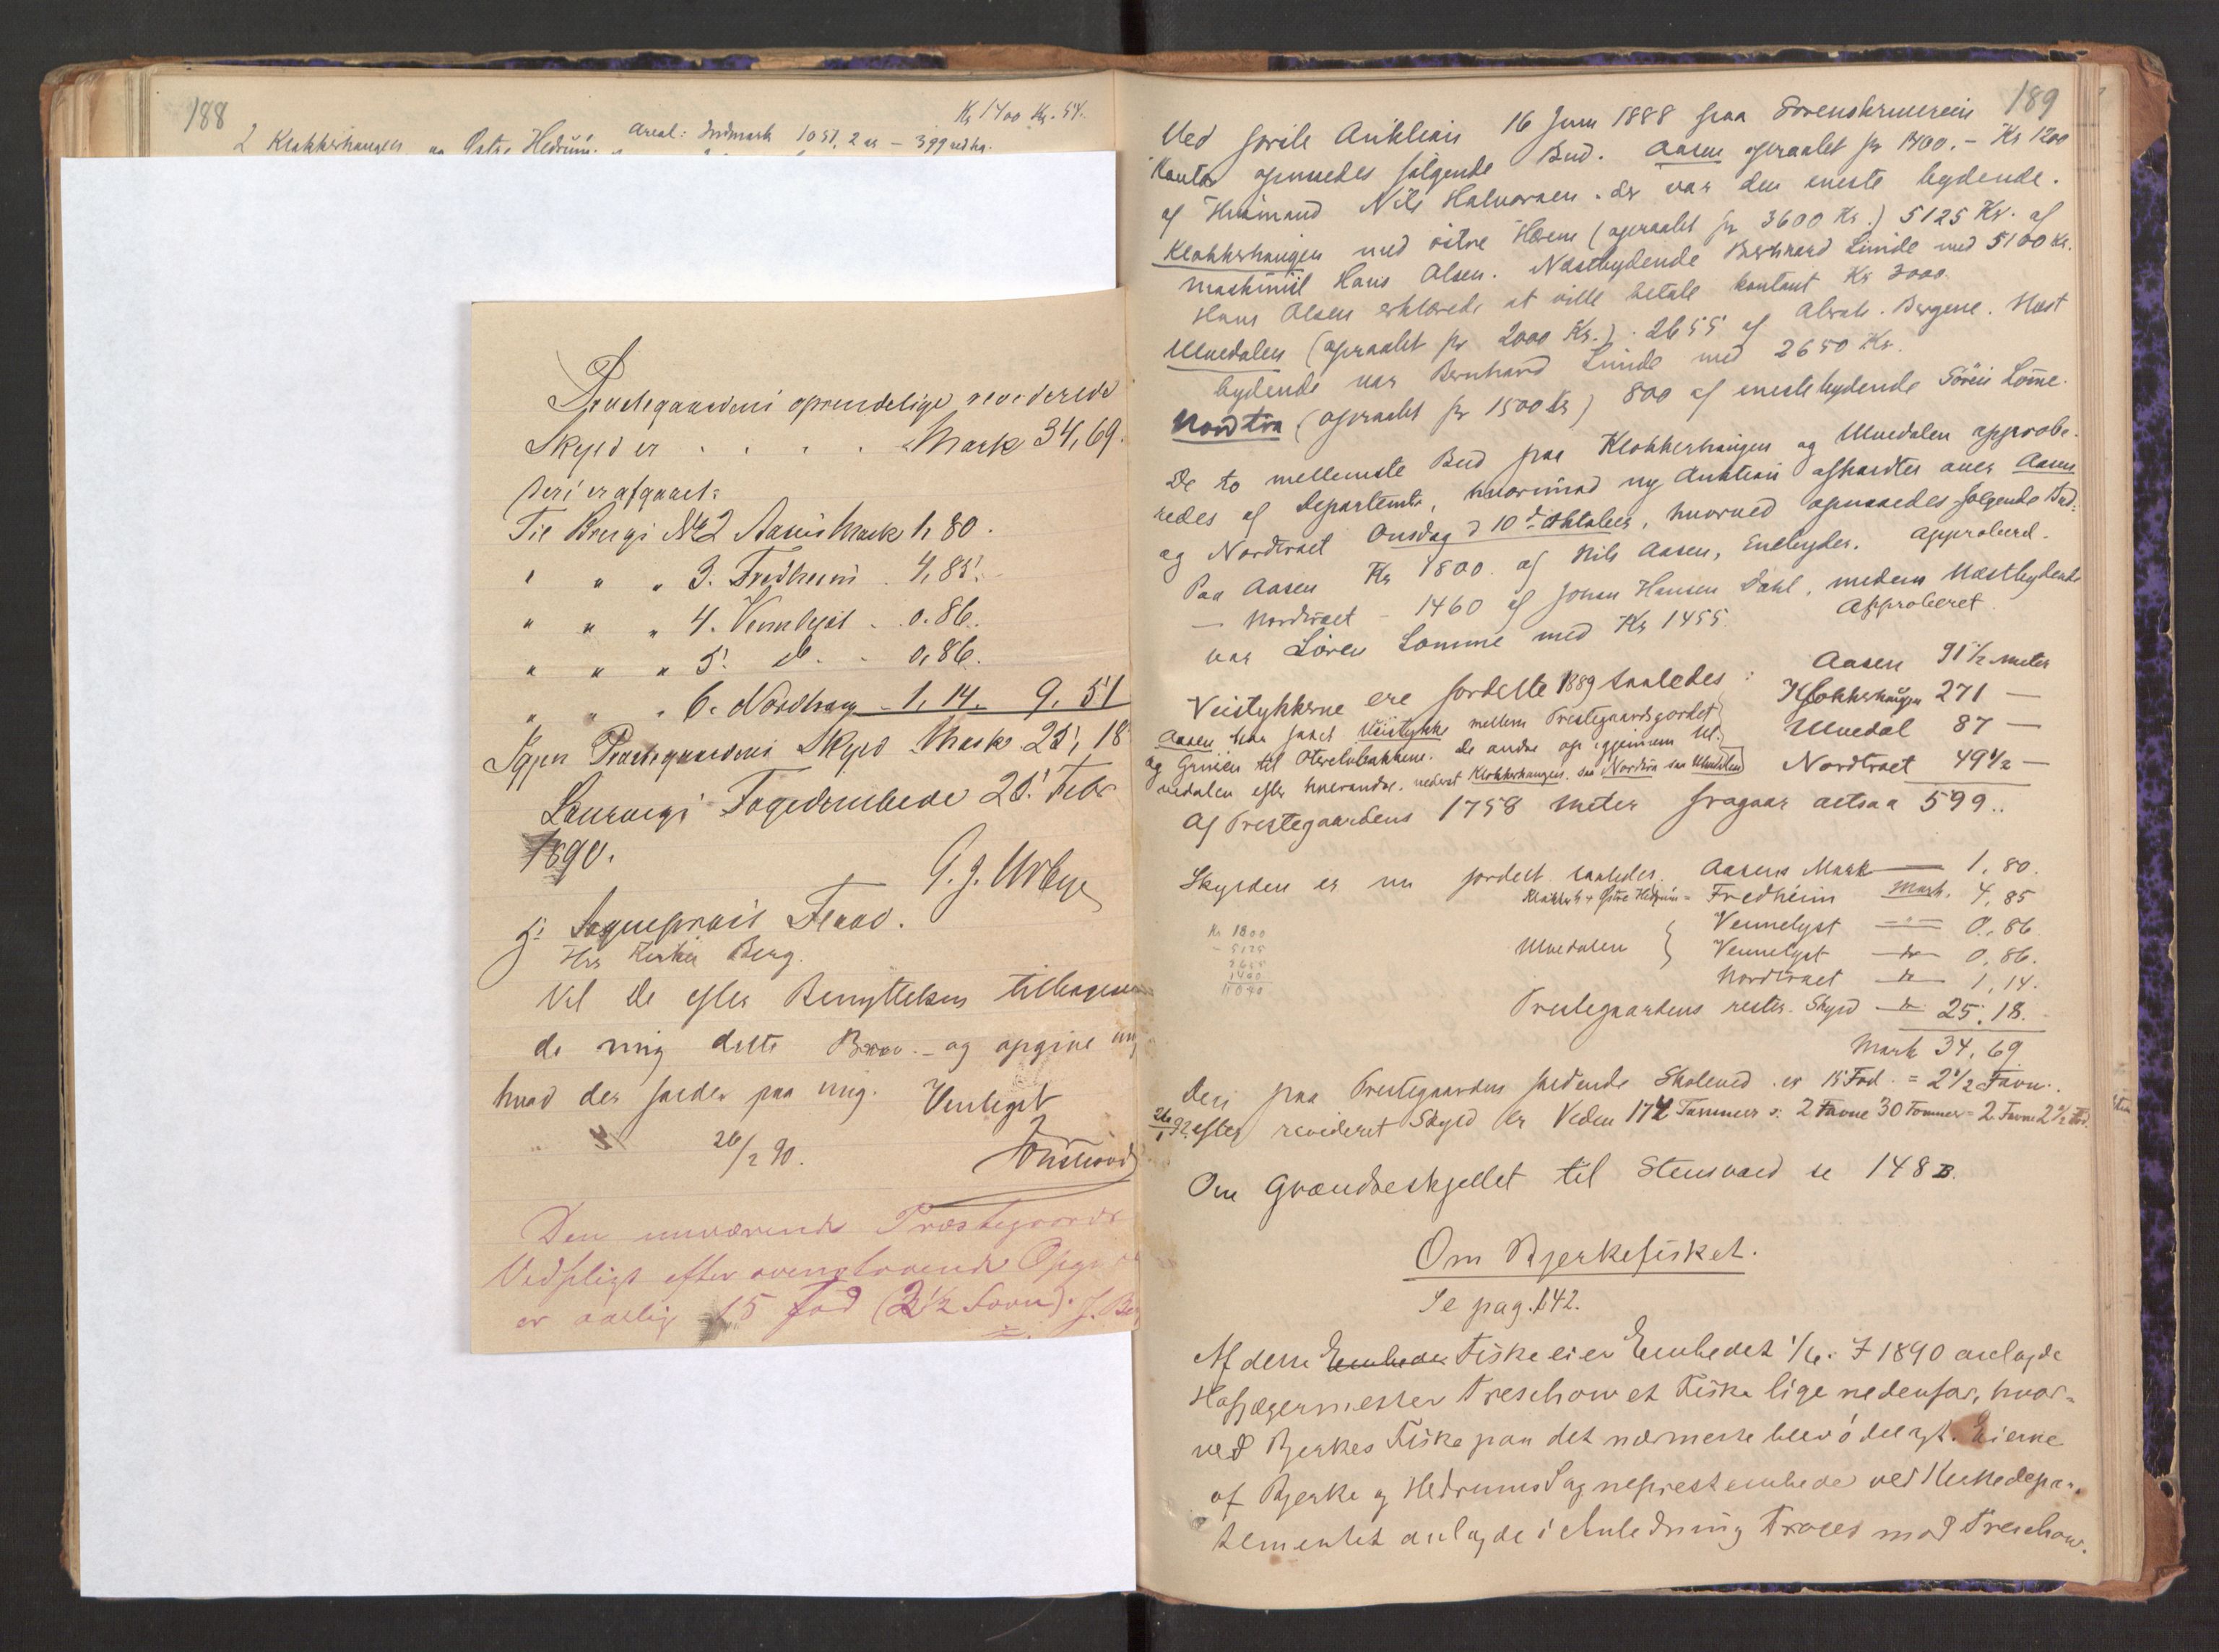 188
Kr 1400 Kr. 54.
2 Klokkerhaugen og Østre Hedrum. Areal: Indmark 1051,2 ar – 399 udhg.
Prestegaardens oprindelige reviderede
Skyld er . . . . Mark 34,69.
Heri er afgaaet:
Til Brugs No 2 Aasens Mark 1,80.
" " " 3. Fredheim . 4,85.
" " " 4. Vennelyst . 0.86.
" " " 5. do . . 0,86.
" " " 6. Nordtraa 1,14. 9,51
Igjen Prestegaardens Skyld Mark 25,18
Laurvigs Fogedembede 25. Febr
1890.
G. J. Urbye
Hr Sogneprest Flood.
Hrr Kirkev. Berg.
Vil De efter Benyttelsen tilbagesen
de mig dette Brev. – og opgive mig
hvad der falder paa mig. Venligst
26/2 90.
Den nuværende Præstegaards
Vedpligt efter ovenstaaende Opgave
er aarlig 15 Fod (2½ Favn). J. Be
189
Ved forste Auktion 16 Juni 1888 paa Sorenskriverens
Kontor opnuedes følgende Bud. Aasen opraabt for 1400. – Kr 1200
af Husmand Nils Halvorsen. der var den eneste bydende.
Klokkerhaugen med østre Hærum (opraabt for 3600 Kr.) 5125 Kr. af
maskinist Hans Olsen. Næstbydende Bernhard Linde med 5100 Kr.
Hans Olsen erklærede at ville betale kontant Kr 3000.
Ulvedalen (opraabt for 2000 Kr.) . 2655 af Abrah. Bergene. Næst
bydende var Bernhard Linde med 2650 Kr.
Nordtra (opraabt for 1500 Kr) 800 af eneste bydende Sören Lomme.
De to mellemste Bud paa Klokkerhaugen og Ulvedalen approbe-
redes af Departemtet, hvorimod ny Auktion afholdtes over Aasen
og Nordtraet Onsdag d 10de Oktober, hvorved opnaaedes følgende Bud:
Paa Aasen Kr 1800. af Nils Aasen, Enebyder. Approberet.
— Nordtraet – 1460 af Johan Hansen Dahl, medens Næstbydende
var Søren Lomme med Kr 1455. Approberet.
Veistykkerne ere fordelte 1889 saaledes: Aasen 91½ meter
Klokkerhaugen 271 —
Aasen har faaet Veistykke mellem Prestegaardsgordet Ulvedal 87 —
og Grinien til Hvelvbakkene. De andre op igjennem Ul- Nordtraet 49½ —
vedalen efter hverandre. nederst Klokkerhaugen, saa Nordtra saa Ulvedalen
Af Prestegaardens 1758 meter fragaar altsaa 599..
Skylden er nu fordelt saaledes. Aasens Mark — 1,80.
Klokkerh + Østre Hedrum = Fredheim Mark. 4,85
Kr 1800
Vennelyst — " — 0,86.
– 5125
Ulvedalen } Vennelyst — do — 0,86.
2655
1460
Nordtraet — do — 1,14.
11040
Prestegaardens rester. Skyld — do — 25,18.
Mark 34,69
Den paa Prestegaarden faldende Skoleved er 15 Fod. = 2½ Favn.
26/1 92. efter revideret Skyld er Veden 174 Tommer o: 2 Favne 30 Tommer = 2 Favne 2½ Fod.
Om Grændseskjellet til Stensvaed se 148 B.
Om Bjerkefisket.
Se pag. 142.
Af dette Embeder Fiske eier Embedet 1/6. I 1890 anlagde
Hofjægermester Treschow et Fiske lige nedenfor, hvor-
ved Bjerkes Fiske paa det nærmeste blev ødelagt. Eierne
af Bjerke og Hedrums Sogneprestembede ved Kirkedepar-
tementet anlagde i Anledning Proces mod Treschow.